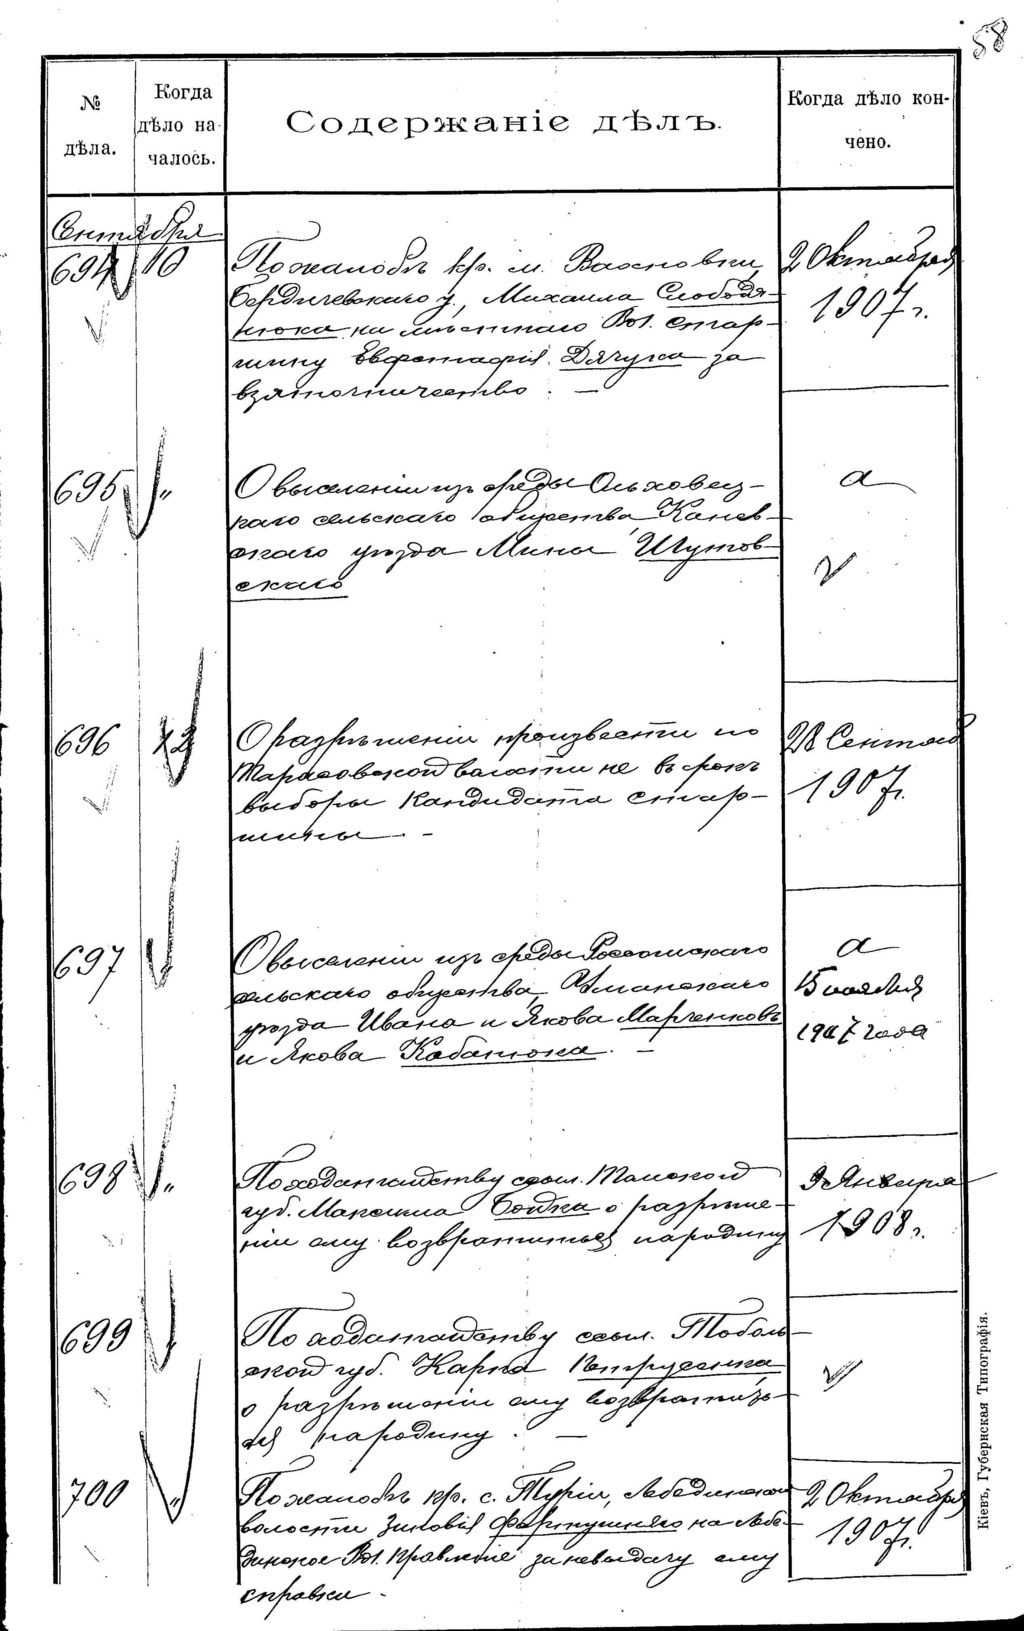 58
№ дѣла.
Когда дѣло началось.
Содержаніе дѣлъ.
Когда дѣло кончено.
Сентября
694 10
По жалобѣ кр. м. Вахновки,
Бердичевскаго у., Михаила Слободя-
нюка на мѣстнаго Вол. Стар-
шину Евстафія Дячука за
взяточничество. —
2 Октября
1907 г.
695 "
О выселеніи изъ среды Ольховец-
каго сельскаго общества Канев-
скаго уѣзда Мины Шутов-
скаго
а
696 12
О разрѣшеніи произвести по
Тарасовской волости не въ срокъ
выборы Кандидата стар-
шины —
28 Сентяб
1907 г.
697 "
О выселеніи изъ среды
сельскаго общества, Уманскаго
уѣзда Ивана и Якова Марченковъ
и Якова Кабанюка. —
а
15 ноября
1907 года
698 "
По ходатайству ссыл. Томской
губ. Максима Бойка о разрѣше-
ніи ему возвратиться на родину
9 Января
1908 г.
699 "
По ходатайству ссыл. Тоболь-
ской губ. Карпа Петрусенка
о разрѣшеніи ему возвратить-
ся на родину. —
700 "
По жалобѣ кр. с. Туріи, Лебединской
волости Зиновія на Лебе-
динское Вол. Правленіе за невыдачу ему
справки -
2 Октября
1907 г.
Кіевъ, Губернская Типографія.